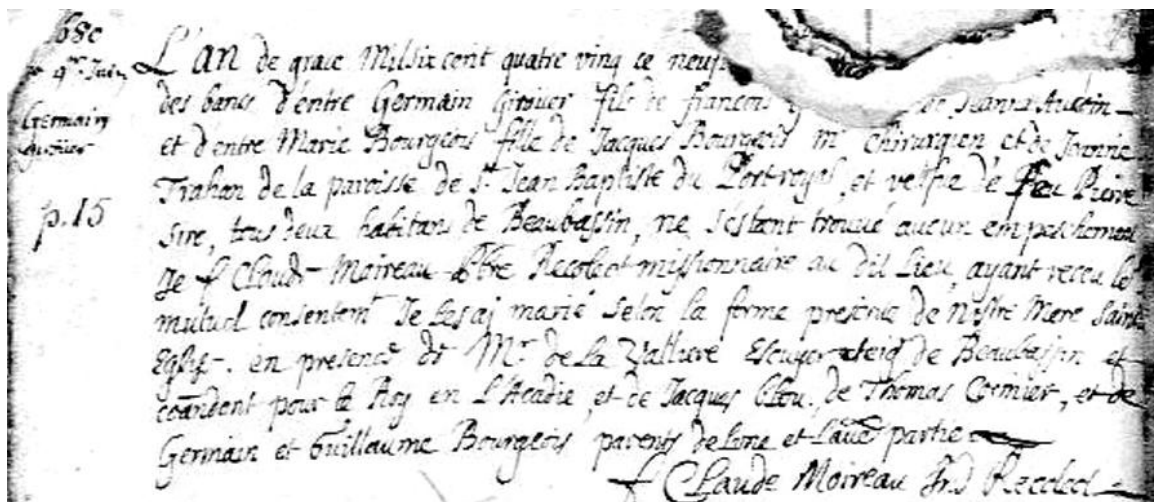 68c
9me Juin
Germain
girouer
p.15
L'an de grace Mil six cent quatre ving ce neuf
des bancs d'entre Germain Girouer fils de francois de Jeanne Aucoin
et d'entre Marie Bourgeois fille de Jacques Bourgeois mr Chirurgien et de Jeanne
Trahan de la paroisse de St Jean Baptiste du Port royal, et vefue de Feu Pierre
Sire, tous deux habitans de Beaubassin, ne s'estant trouué aucun empeschement
Je f Claude Moireau Pbre Recolect missionnaire au dit Lieu, ayant receu le
mutuel consentemt Je Les aj marié selon la forme prescrite de Nostre Mere Sainte
Eglise. en presence de Mr de La Valliere Escuyer seigr de Beaubassin et
coandant pour le Roy en L'Acadie, et de Jacques blou, de Thomas Cormier, et de
Germain et Guillaume Bourgeois parents de Lune et Laue partie
f Claude Moireau Recolect